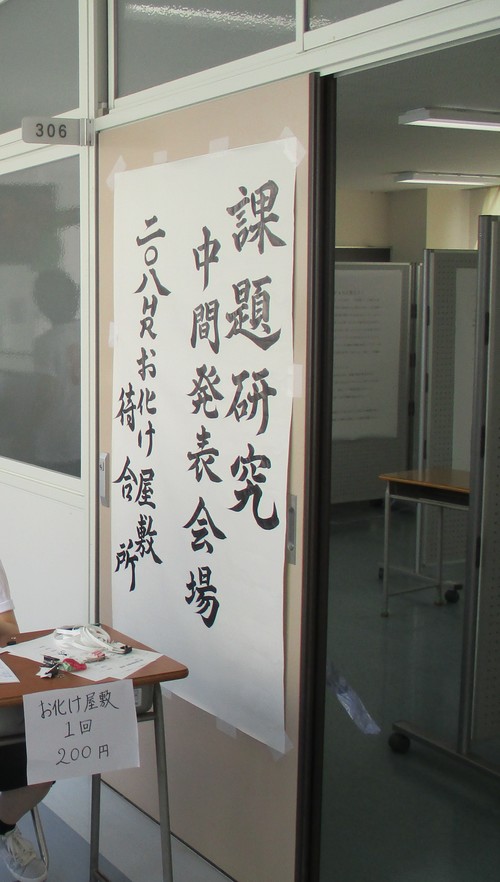 306
課題研究
中間発表会場
二〇八HRお化け屋敷
待合所
お化け屋敷
1回
200円